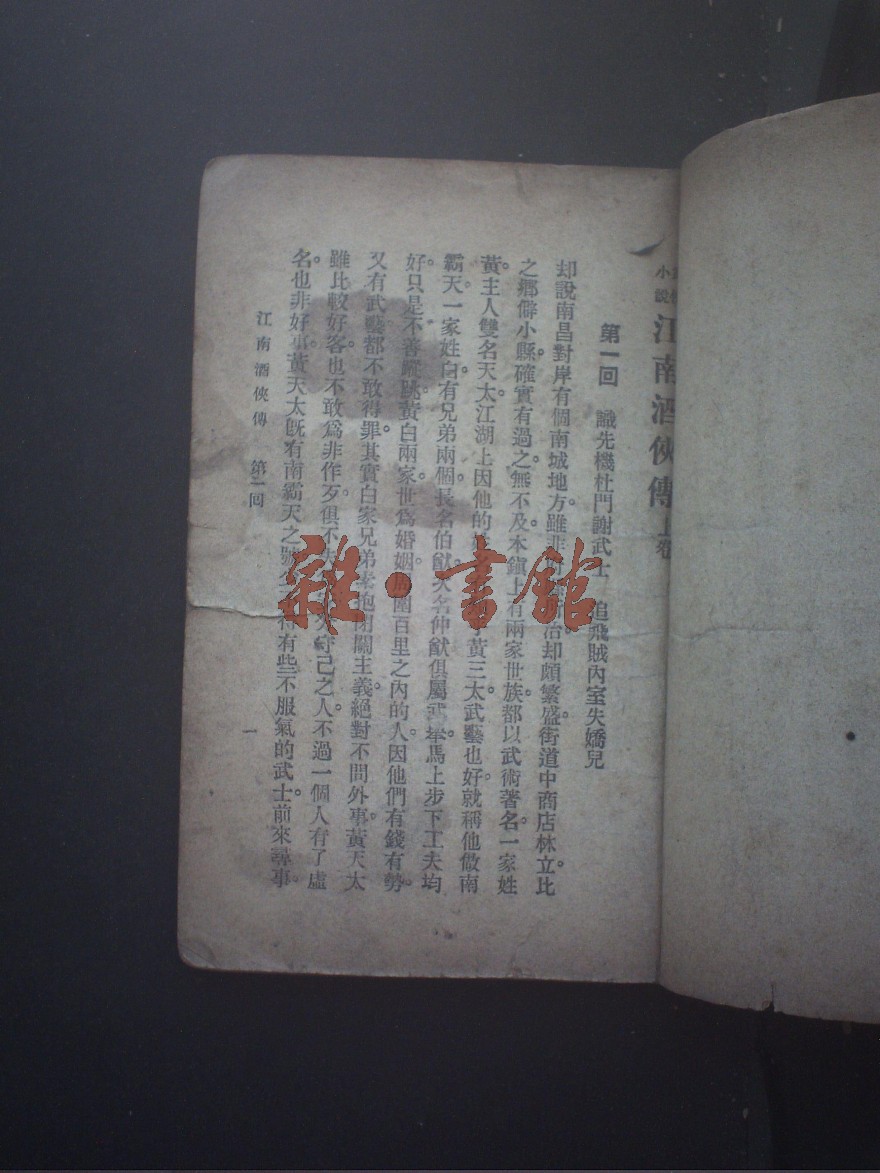 小說 江南酒俠傳 上卷
第一回 識先機杜門謝武士 追飛賊內室失嬌兒
却說南昌對岸有個南城地方。雖非治却頗繁盛。街道中商店林立。比
之鄉僻小縣。確實有過之無不及。本鎮上有兩家世族。都以武術著名。一家姓
黃。主人雙名天太。江湖上因他的黃三太。武藝也好。就稱他做南
霸天。一家姓白。有兄弟兩個。長名伯猷。次名仲猷。俱屬武舉。馬上步下工夫均
好。只是不善蹤跳。黃白兩家世爲婚姻。周圍百里之內的人。因他們有錢有勢。
又有武藝。都不敢得罪。其實白家兄弟素抱閉關主義。絕對不問外事。黃天太
雖比較好客。也不敢爲非作歹。俱不失守己之人。不過一個人有了虛
名。也非好事。黃天太旣有南霸天之號。得有些不服氣的武士。前來尋事
江南酒俠傳 第一回 一
雜·書館